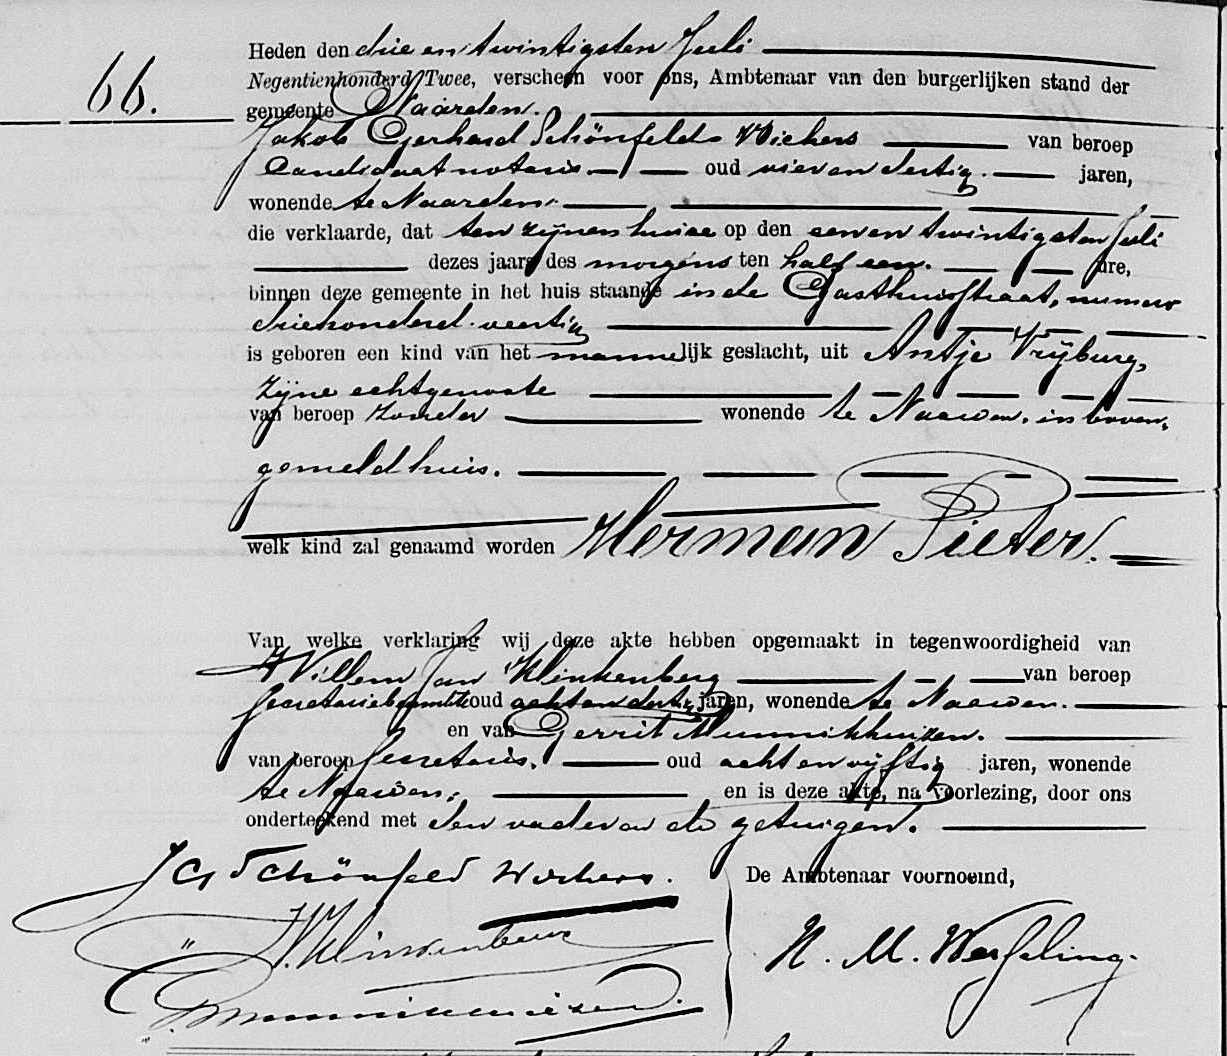 66.
Heden den drie en twintigsten Juli
Negentienhonderd Twee, verscheen voor ons, Ambtenaar van den burgerlijken stand der
gemeente Naarden.
Jakob Gerhard Schönfeld Wichers van beroep
Candidaat notaris oud vier en dertig jaren,
wonende te Naarden.
die verklaarde, dat ten zijnen huize op den een en twintigsten Juli
dezes jaars des morgens ten half een. ure,
binnen deze gemeente in het huis staande in de Gasthuisstraat, nummer
driehonderd veertig
is geboren een kind van het mannelijk geslacht, uit Antje Vrijburg,
zijne echtgenoote
van beroep zonder wonende te Naarden. in boven,
gemeld huis.
welk kind zal genaamd worden Herman Pieter.
Van welke verklaring wij deze akte hebben opgemaakt in tegenwoordigheid van
Willem Jan Klinkenberg van beroep
Secretariebeambte oud acht en dertig jaren, wonende te Naarden.
en van Gerrit Munnikhuizen.
van beroep Secretaris. oud acht en vijftig jaren, wonende
te Naarden; en is deze akte, na voorlezing, door ons
onderteekend met den vader en de getuigen.
J G Schönfeld Wichers.
De Ambtenaar voornoemd,
WJKlinkenberg
H. M. Werfeling.
G. Munnikhuizen.